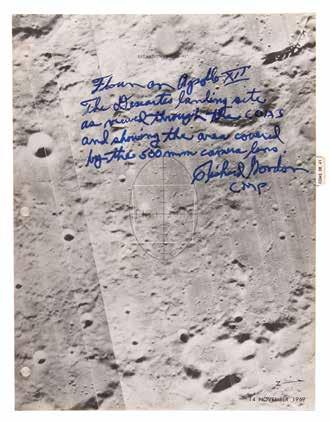 Flown on Apollo XII
The Descartes landing site
as viewed through the COAS
and showing the area covered
by the 500mm camera lens
Richard Gordon
CMP
14 NOVEMBER 1969